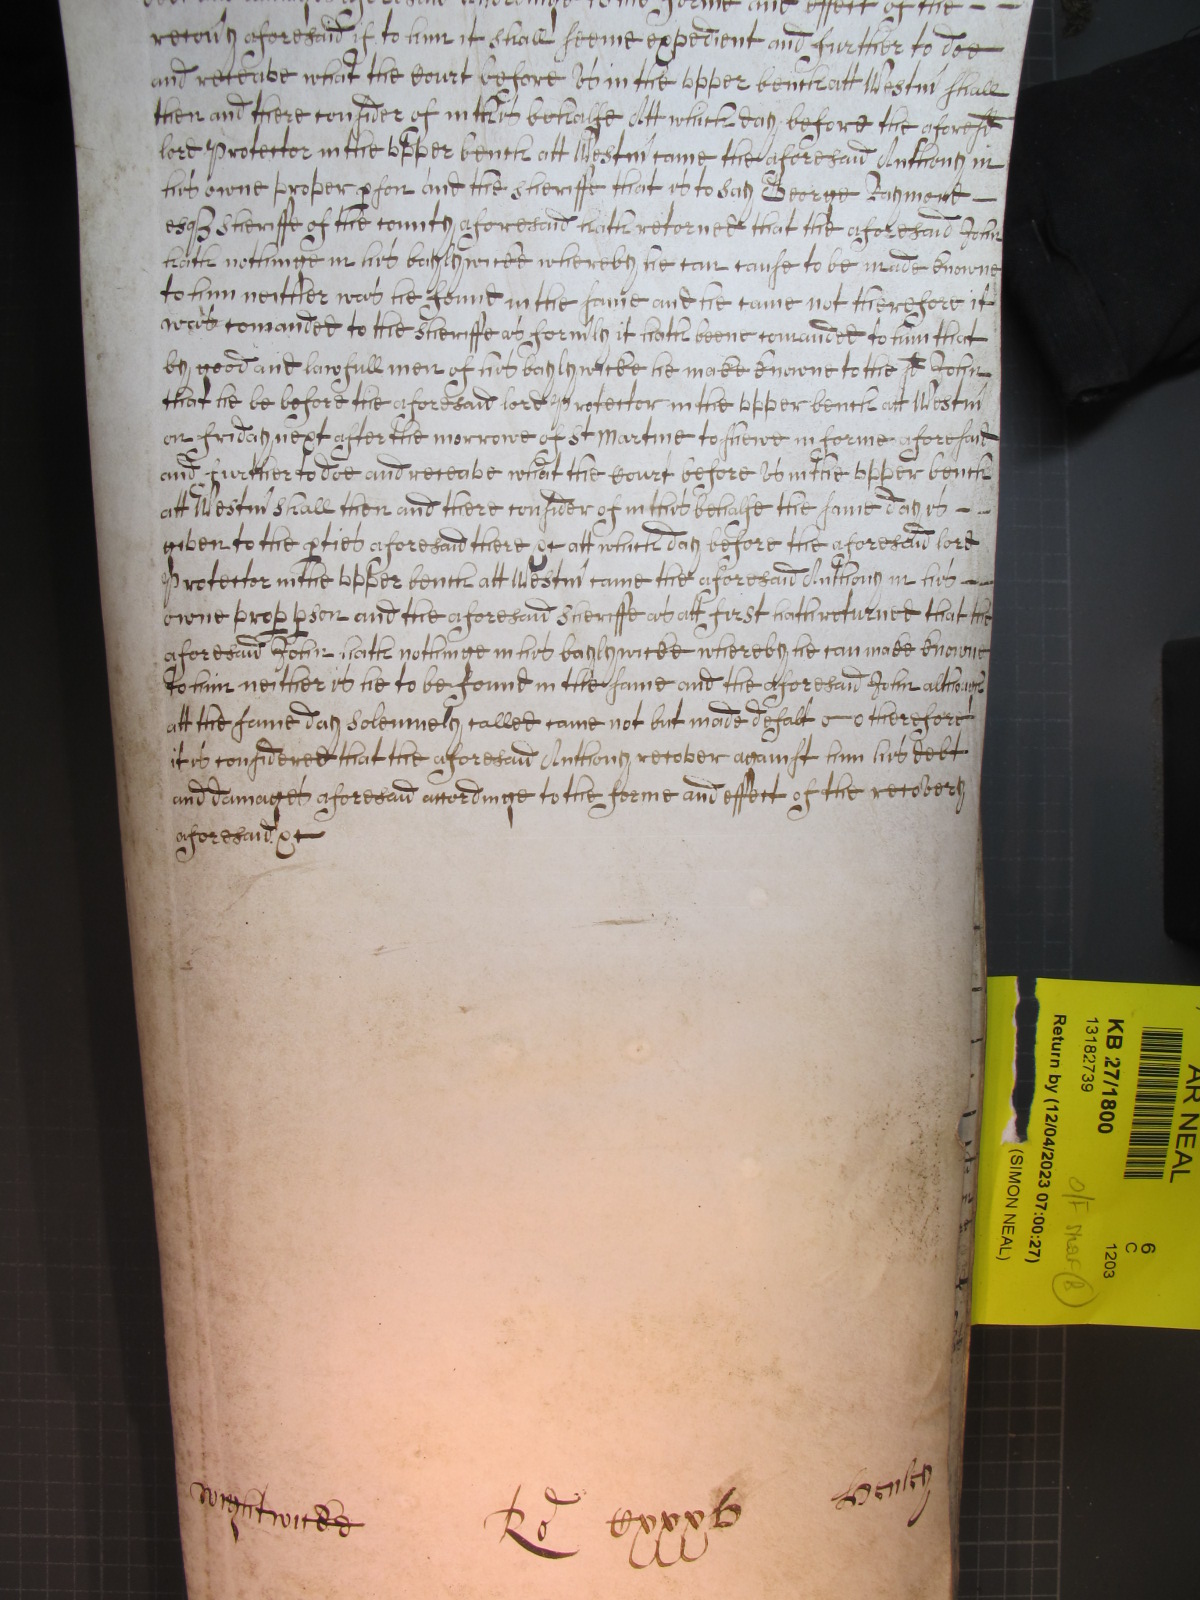 debt and damages aforesaid accordinge to the forme and effect of the
recovỹ aforesaid if to him it shall seeme expedient and further to doe
and receave what the Court before vs in the vpper bench att Westm̃ shall
then and there consider of in this behalfe Att which day before the aforesđ
lord Protector in the vpper bench att Westm̃ came the aforesaid Anthony in
his owne proper ꝑson and the Sheriffe that is to say George Raymond
esqȝ Sheriffe of the county aforesaid hath retorned that the aforesaid John
hath nothinge in his baylywicke whereby he can cause to be made knowne
to him neither was he found in the same and he came not therefore it
was com̃anded to the Sheriffe as form̃ly it hath beene com̃anded to him that
by good and lawfull men of his baylywicke he make knowne to the sđ John
that he be before the aforesaid lord Protector in the vpper bench att Westm̃
on friday next after the morrowe of St Martine to shewe in forme aforesaid
and further to doe and receave what the Court before vs in the vpper bench
att Westm̃ shall then and there consider of in this behalfe the same day is
given to the ꝑties aforesaid there &c att which day before the aforesaid lord
Protector in the vpper bench att Westm̃ came the aforesaid Anthony in his
owne proꝑ ꝑson and the aforesaid Sheriffe as att first hath returned that the
aforesaid John hath nothinge in his baylywicke whereby he can make knowne
to him neither is he to be found in the same and the aforesaid John although
att the same day solemnely called came not but made defalt therefore
it is considered that the aforesaid Anthony recover against him his debt
and damages aforesaid accordinge to the forme and effect of the recovery
aforesaid &c
Wightwicke Ro cxxxv Henley
AR NEAL
KB 27/1800
13182739
6
C
1203
Return by (12/04/2023 07:00:27)
(SIMON NEAL)